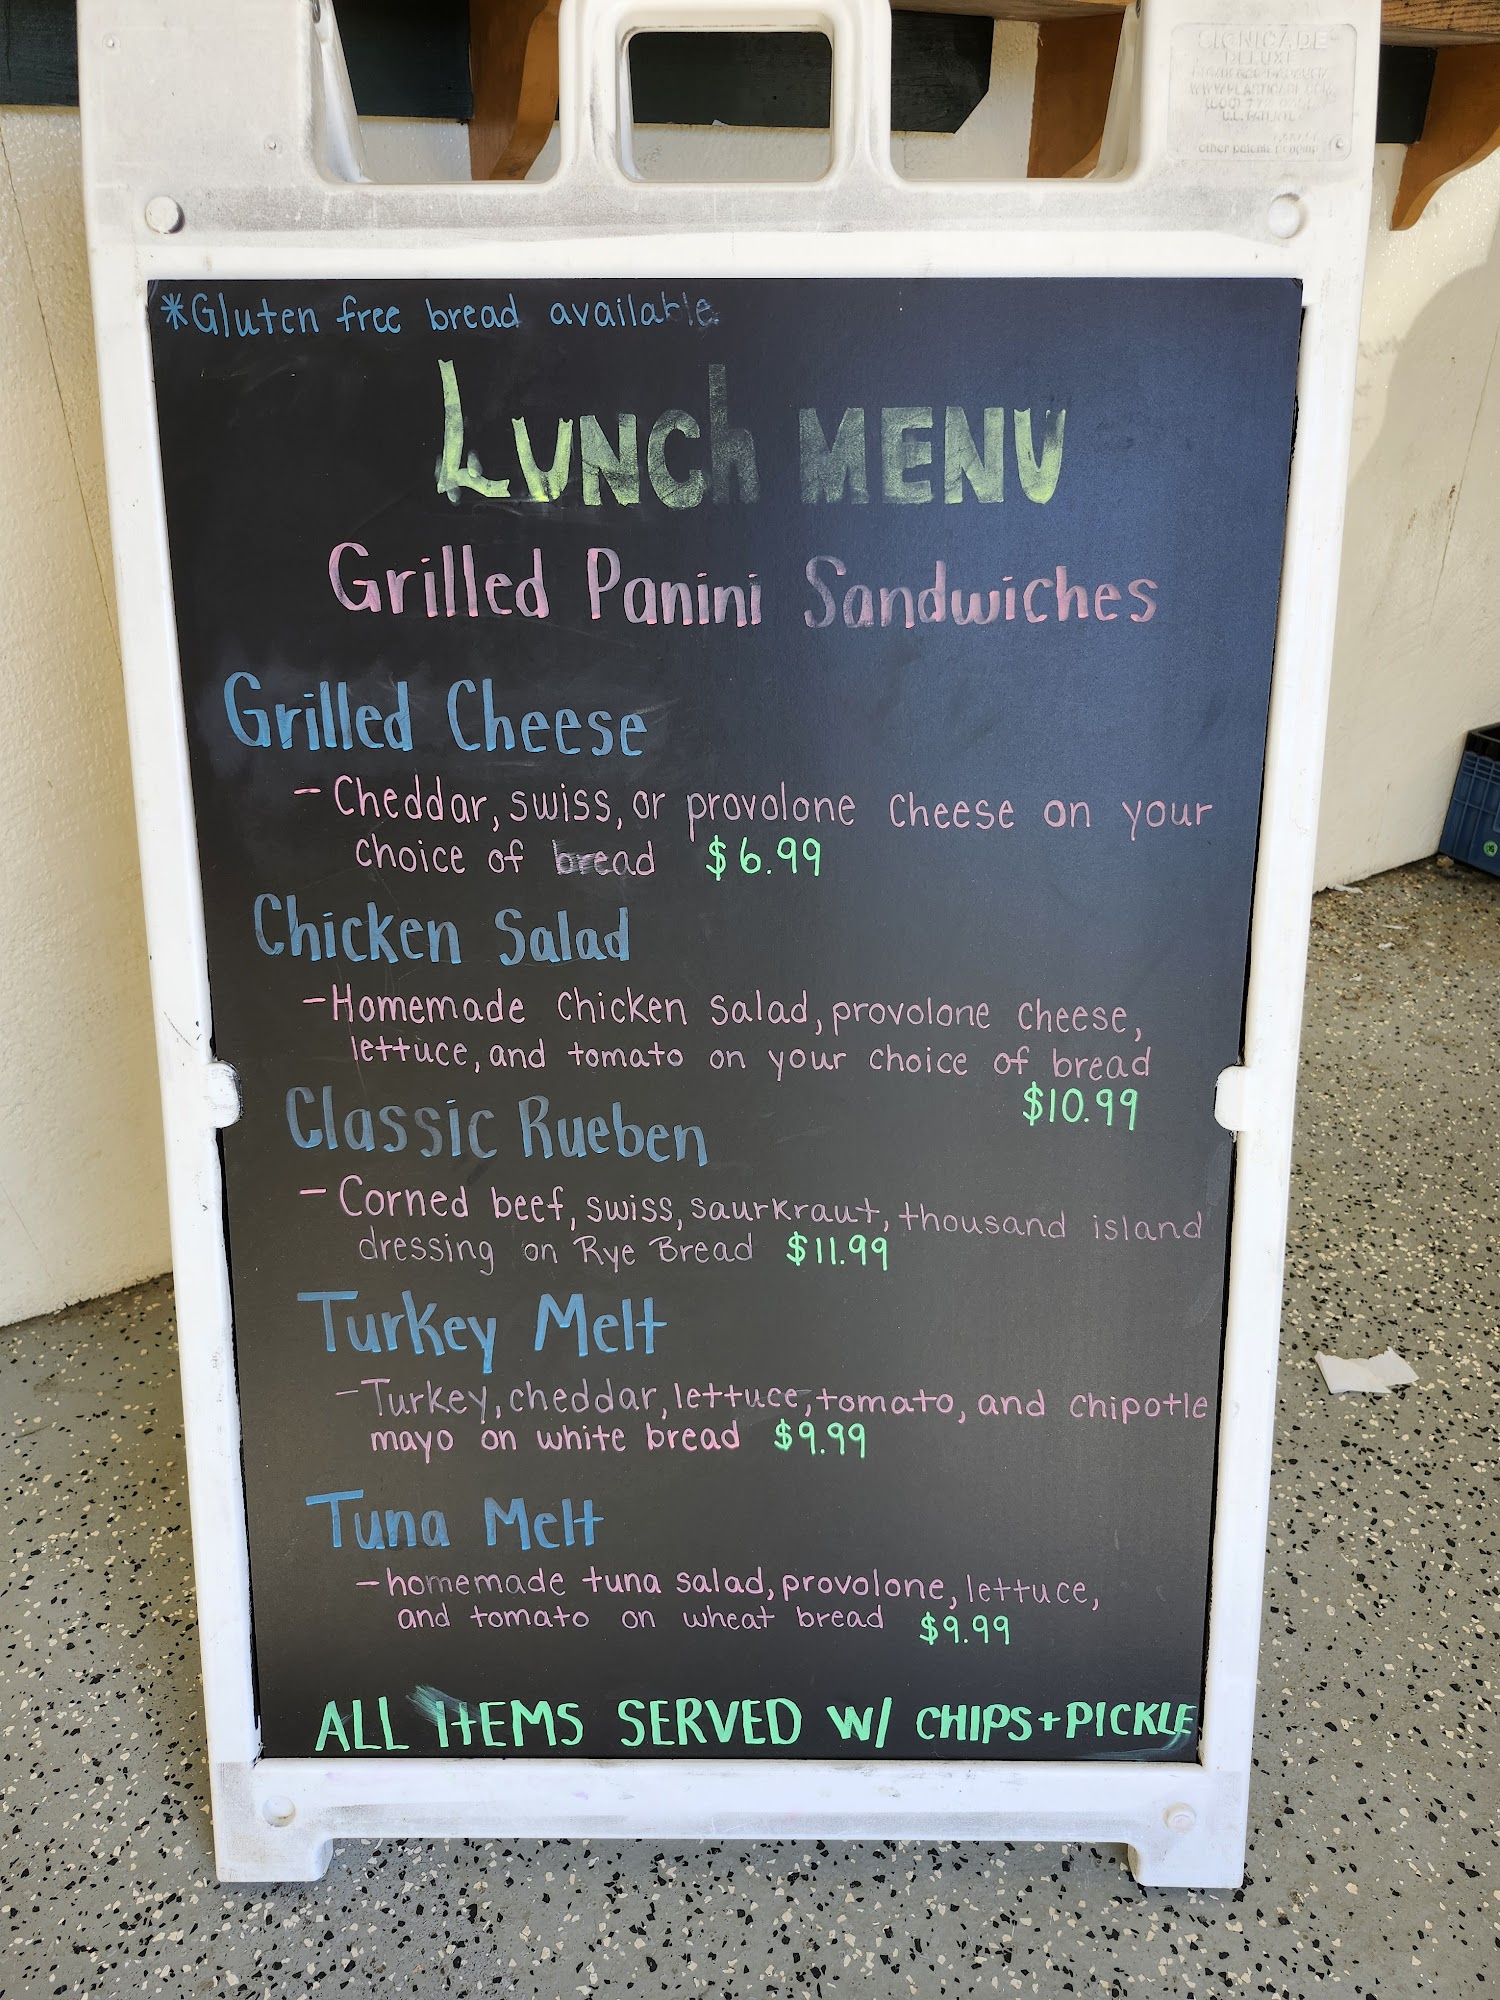 SIGNICADE
DELUXE
*Gluten free bread available
LUNCh MENU
Grilled Panini Sandwiches
Grilled Cheese
- Cheddar, swiss, or provolone cheese on your
choice of bread $6.99
Chicken Salad
- Homemade chicken salad, provolone cheese,
lettuce, and tomato on your choice of bread
$10.99
Classic Rueben
- Corned beef, swiss, saurkraut, thousand island
dressing on Rye Bread $11.99
Turkey Melt
- Turkey, cheddar, lettuce, tomato, and chipotle
mayo on white bread $9.99
Tuna Melt
- homemade tuna salad, provolone, lettuce,
and tomato on wheat bread $9.99
ALL ITEMS SERVED W/ CHIPS + PICKLE